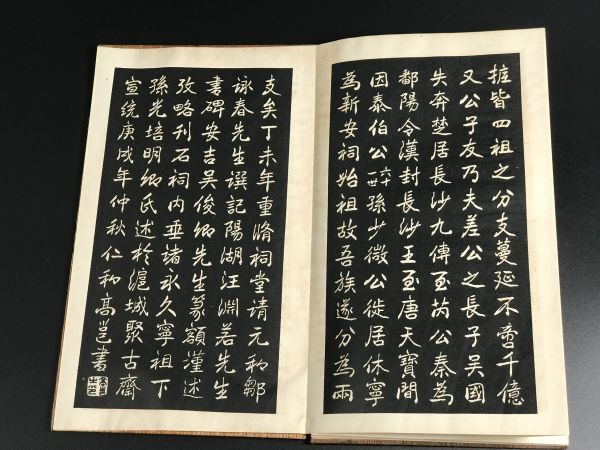 掋皆四祖之分支蔓延不啻千億
又公子友乃夫差公之長子吴國
失奔楚居長沙九傳至芮公秦為
鄱陽令漢封長沙王至唐天寶間
因泰伯公六十一世孫少微公徙居休寧
為新安祠始祖故吾族遂分為兩
支矣丁未年重脩祠堂请元和鄒
詠春先生譔記陽湖汪淵若先生
書碑安吉吴俊卿先生篆額謹述
攷略刊石祠内垂诸永久寧祖下
孫光培明卿氏述於滬城聚古齋
宣統庚戌年仲秋仁和高邕書